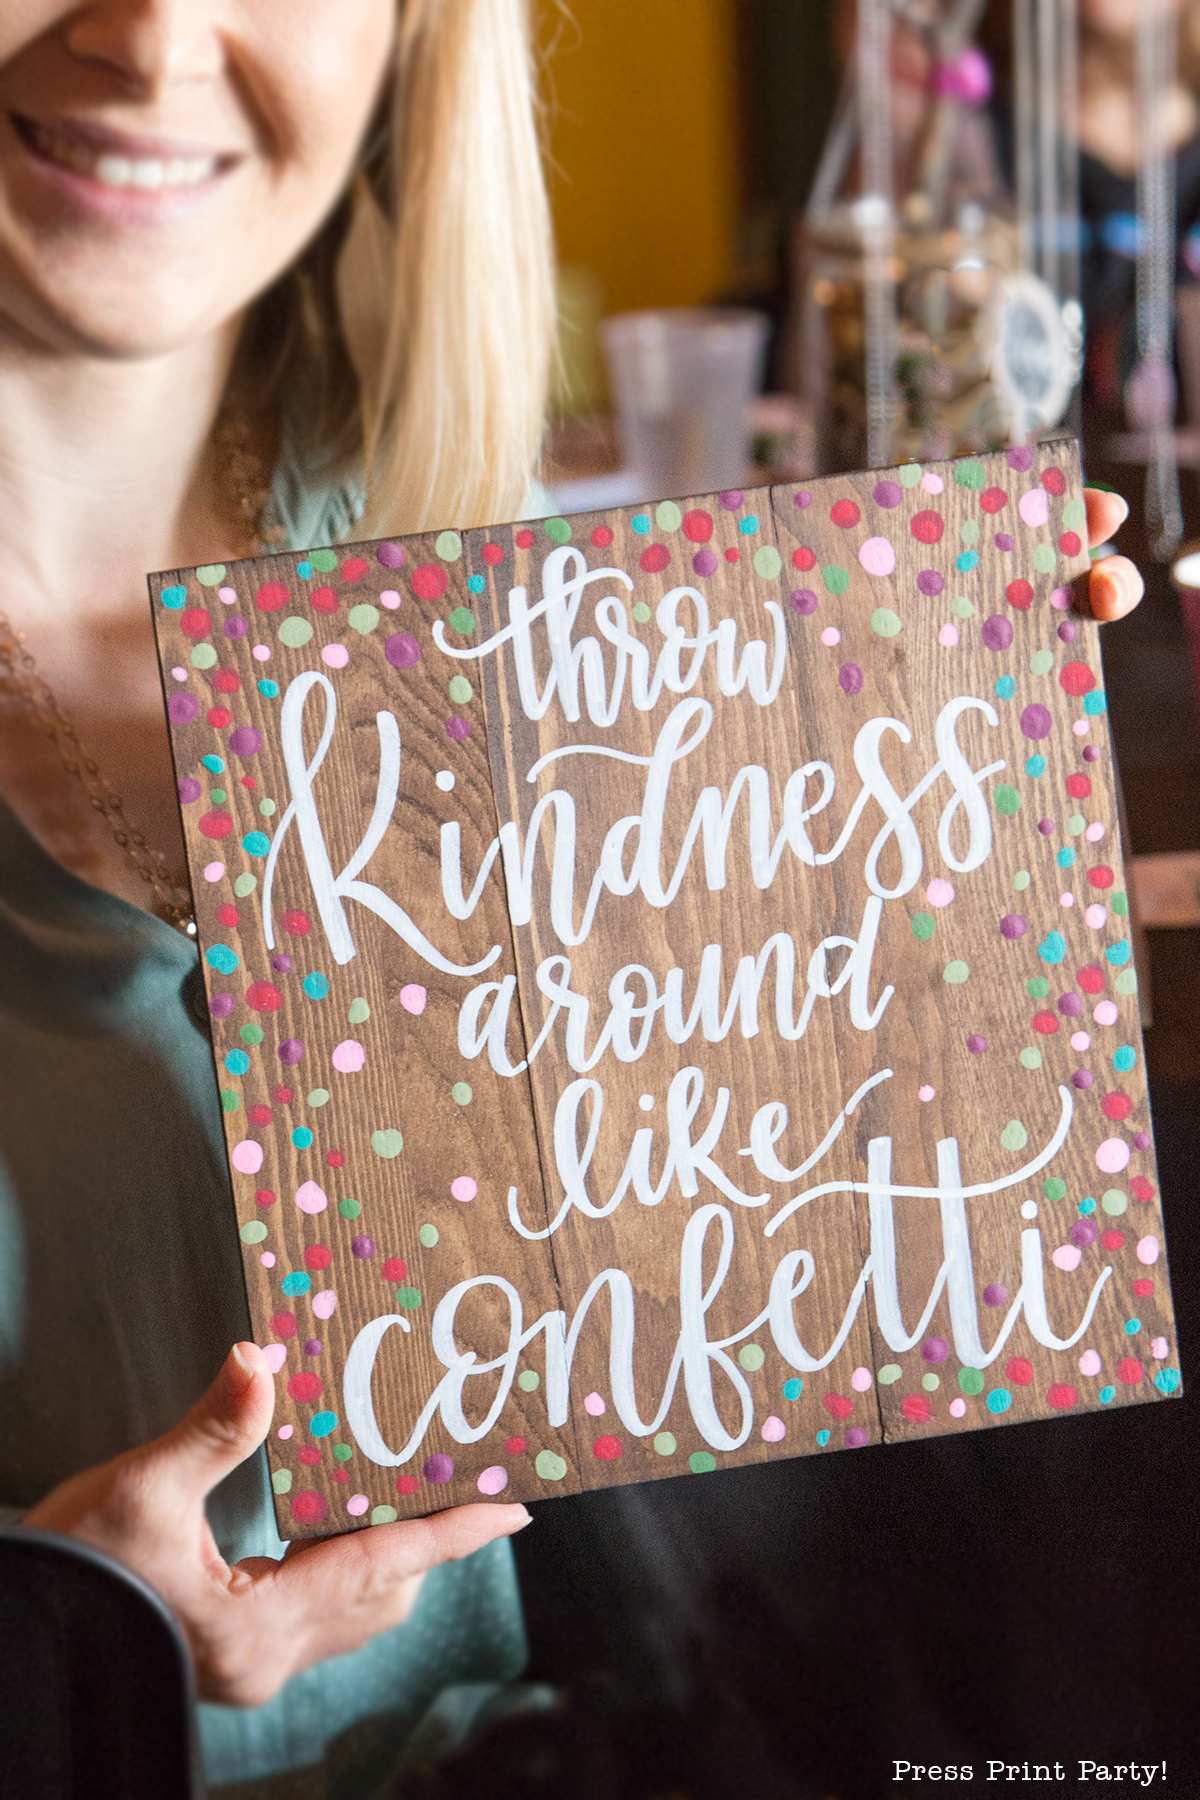 throw
kindness
around
like
confetti
Press Print Party!